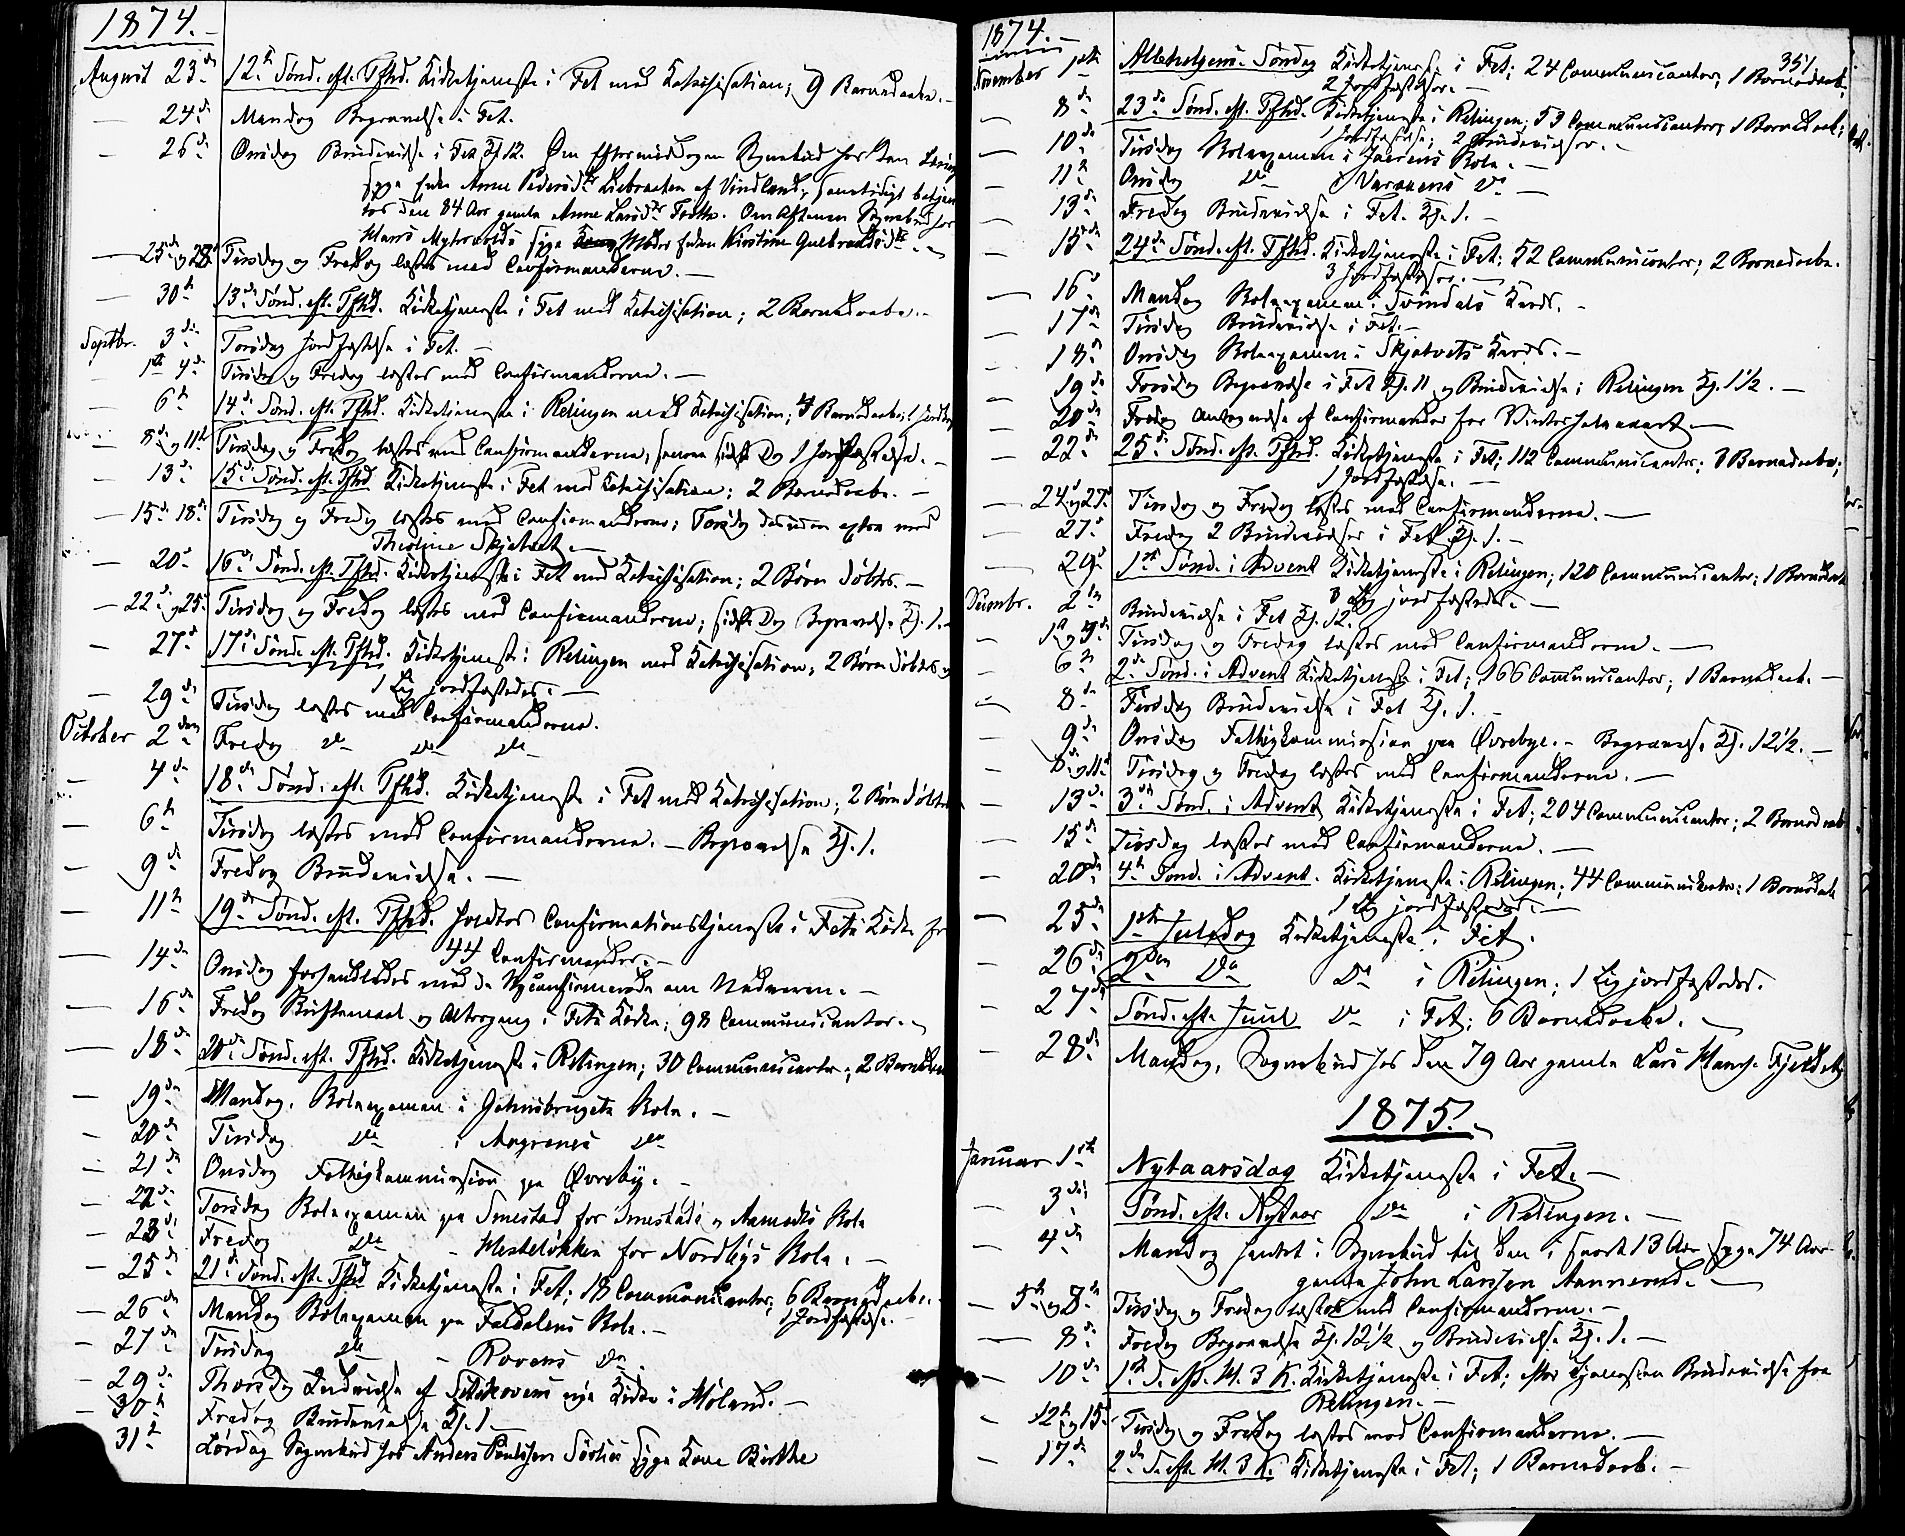 1874.
August 23de 12te Sønd. eft. Trfhd. Kirketjeneste i Fet med Katechisation; 9 Barnedaabe. -
— 24de Mandag Begravelse i Fet.
- 26de Onsdag Brudevielse i Fet Kl. 12. Om Eftermiddagen Sognebud hos den
syge Enke Anne Pedersdtr af Vindland, samtidigt betjen-
tes den 84 Aar gamle Anne Larsdtr Om Aftenen Sognebud hos
Hans syge Moder Enken Kirstine Gulbrandsdtr. -
— 25de og 28de Tirsdag og Fredag læstes med Confirmanderne. —
— 30te 13de Sønd. eft. Trfhd. Kirketjeneste i Fet med Katechisation; 2 Barnedaabe. -
Septbr. 3die Torsdag Jordfæstelse i Fet. —
- 1ste 4de Tirsdag og Fredag læstes med Confirmanderne. —
- 6te 14de Sønd. eft. Trfhd. Kirketjeneste i Rælingen med Katechisation; 4 Barnedaabe; 1
— 8de og 11te Tirsdag og Fredag læstes med Confirmanderne, samme sidste Dag 1 Jordfæstelse. -
— 13de 15de Sønd. eft. Trfhd Kirketjeneste i Fet med Katechisation; 2 Barnedaabe. —
— 15de 18de Tirsdag og Fredag læstes med Confirmanderne; Torsdag desuden extra med
Theoline Skjatvet. —
— 20de 16de Sønd. eft. Trfhd. Kirketjeneste i Fet med Katechisation; 2 Børn døbtes. —
— 22de og 25de Tirsdag og Fredag læstes med Confirmanderne; sidste Dag Begravelse Kl. 1. -
- 27de 17de Sønd. eft. Trfhd. Kirketjeneste i Rælingen med Katechisation; 2 Børn døbtes og
1 Lig jordfæstedes. —
- 29de Tirsdag læstes med Confirmanderne.
October 2den Fredag do do do
— 4de 18de Sønd. eft. Trfhd. Kirketjeneste i Fet med Katechisation; 2 Børn døbtes
— 6te Tirsdag læstes med Confirmanderne. — Begravelse Kl. 1.
— 9de Fredag Brudevielse. —
— 11te 19de Sønd. eft. Trfhd. holdtes Confirmationstjeneste i Fets Kirke for
44 Confirmander. —
— 14de Onsdag forhandledes med de Nyconfirmerede om Nadveren. —
— 16de Fredag Skriftemaal og Altergang i Fets Kirke; 98 Communicanter. -
— 18de 20de Sønd. eft. Trfhd. Kirketjeneste i Rælingen; 30 Communicanter; 2
— 19de Mandag. Skoleexamen i Jahnsbrugets Skole. —
— 20de Tirsdag do i do
- 21de Onsdag Fattigkommission paa Øvreby. -
— 22de Torsdag Skoleexamen paa Smestad for Smestads og Aamodts Skole
— 23de Fredag do - Hesteløkken for Nordbys Skole. —
— 25de 21de Sønd. eft. Trfhd Kirketjeneste i Fet; 18 Communicanter; 6 Barnedaabe.
1 Jordfæstelse. -
- 26de Mandag Skoleexamen paa Faldalens Skole. —
- 27de Tirsdag do - Rovens do
- 29de Thorsdag Indvielse af Setskovens nye Kirke i Høland. —
- 30te Fredag Brudevielse Kl. 1. —
31te Lørdag Sognebud hos Anders syge Kone Birthe
1874. —
351
November 1ste Allehelgens-Søndag Kirketjeneste i Fet; 24 Communicanter; 1 Barnedaab;
2 Jordfæstelser. —
— 8de 23de Sønd. eft. Trfhd. Kirketjeneste i Rælingen; 53 Communicanter; 1 Barnedaab;
1 Jordfæstelse; 2 Brudevielser. -
— 10de Tirsdag Skoleexamen i Jarens Skole. —
— 11te Onsdag do i Varaaens do —
— 13de Fredag Brudevielse i Fet. Kl. 1. —
— 15de 24de Sønd. eft. Trfhd. Kirketjeneste i Fet; 52 Communicanter; 2 Barnedaabe.
3 Jordfæstelser. —
— 16de Mandag Skoleexamen i Svindals Kreds. -
— 17de Tirsdag Brudevielse i Fet. —
— 18de Onsdag Skoleexamen i Skjatvets Kreds. —
— 19de Torsdag Begravelse i Fet Kl. 11 og Brudevielse i Rælingen Kl. 1½. —
— 20de Fredag Antegnelse af Confirmander for Vinterhalvaaret. —
— 22de 25de Sønd. eft. Trfhd. Kirketjeneste i Fet; 112 Communicanter; 8 Barnedaabe;
1 Jordfæstelse. —
— 24de og 27de Tirsdag og Fredag læstes med Confirmanderne. —
— 27de Fredag 2 Brudevielser i Fet Kl. 1. —
— 29de 1ste Sønd. i Advent Kirketjeneste i Rælingen; 120 Communicanter; 1 Barnedaab
Lig jordfæstedes. —
Decembr. 2den Brudevielse i Fet Kl. 12.
- 1ste og 4de Tirsdag og Fredag læstes med Confirmanderne. —
- 6te 2den Sønd. i Advent Kirketjeneste i Fet; 166 Communicanter; 1 Barnedaab. —
— 8de Tirsdag Brudevielse i Fet Kl. 1. -
— 9de Onsdag Fattigkommission paa Øvrebye. - Begravelse Kl. 12½. —
— 8de og 11te Tirsdag og Fredag læstes med Confirmanderne. —
— 13de 3die Sønd. i Advent Kirketjeneste i Fet; 204 Communicanter; 2 Barnedaab
— 15de Tirsdag læstes med Confirmanderne. —
— 20de 4de Sønd. i Advent. Kirketjeneste i Rælingen; 44 Communikanter; 1 Barnedaab
1 Lig jordfæstedes. —
— 25de 1ste Juledag Kirketjeneste i Fet.
— 26de 2den do do i Rælingen; 1 Lig jordfæstedes.
- 27de Sønd. eft. Juul do i Fet; 6 Barnedaabe. —
- 28de Mandag, Sognebud hos den 79 Aar gamle Lars Hansen
1875. -
Januar 1ste Nytaarsdag Kirketjeneste i Fet. —
— 3die Sønd. eft. Nytaar do i Rælingen. —
— 4de Mandag hentet i Sognebud til den i snart 13 Aar syge 74 Aar
gamle John Larssen Aannerud. —
— 5te og 8de Tirsdag og Fredag læstes med Confirmanderne. —
— 8de Fredag Begravelse Kl. 12½ og Brudevielse Kl. 1. —
— 10de 1ste S. eft. H. 3 K. Kirketjeneste i Fet; efter Tjenesten Brudevielse fra
Rælingen. —
- 12te og 15de Tirsdag og Fredag læstes med Confirmanderne. —
- 17de 2den S. eft. H. 3 K. Kirketjeneste i Fet; 1 Barnedaab. —